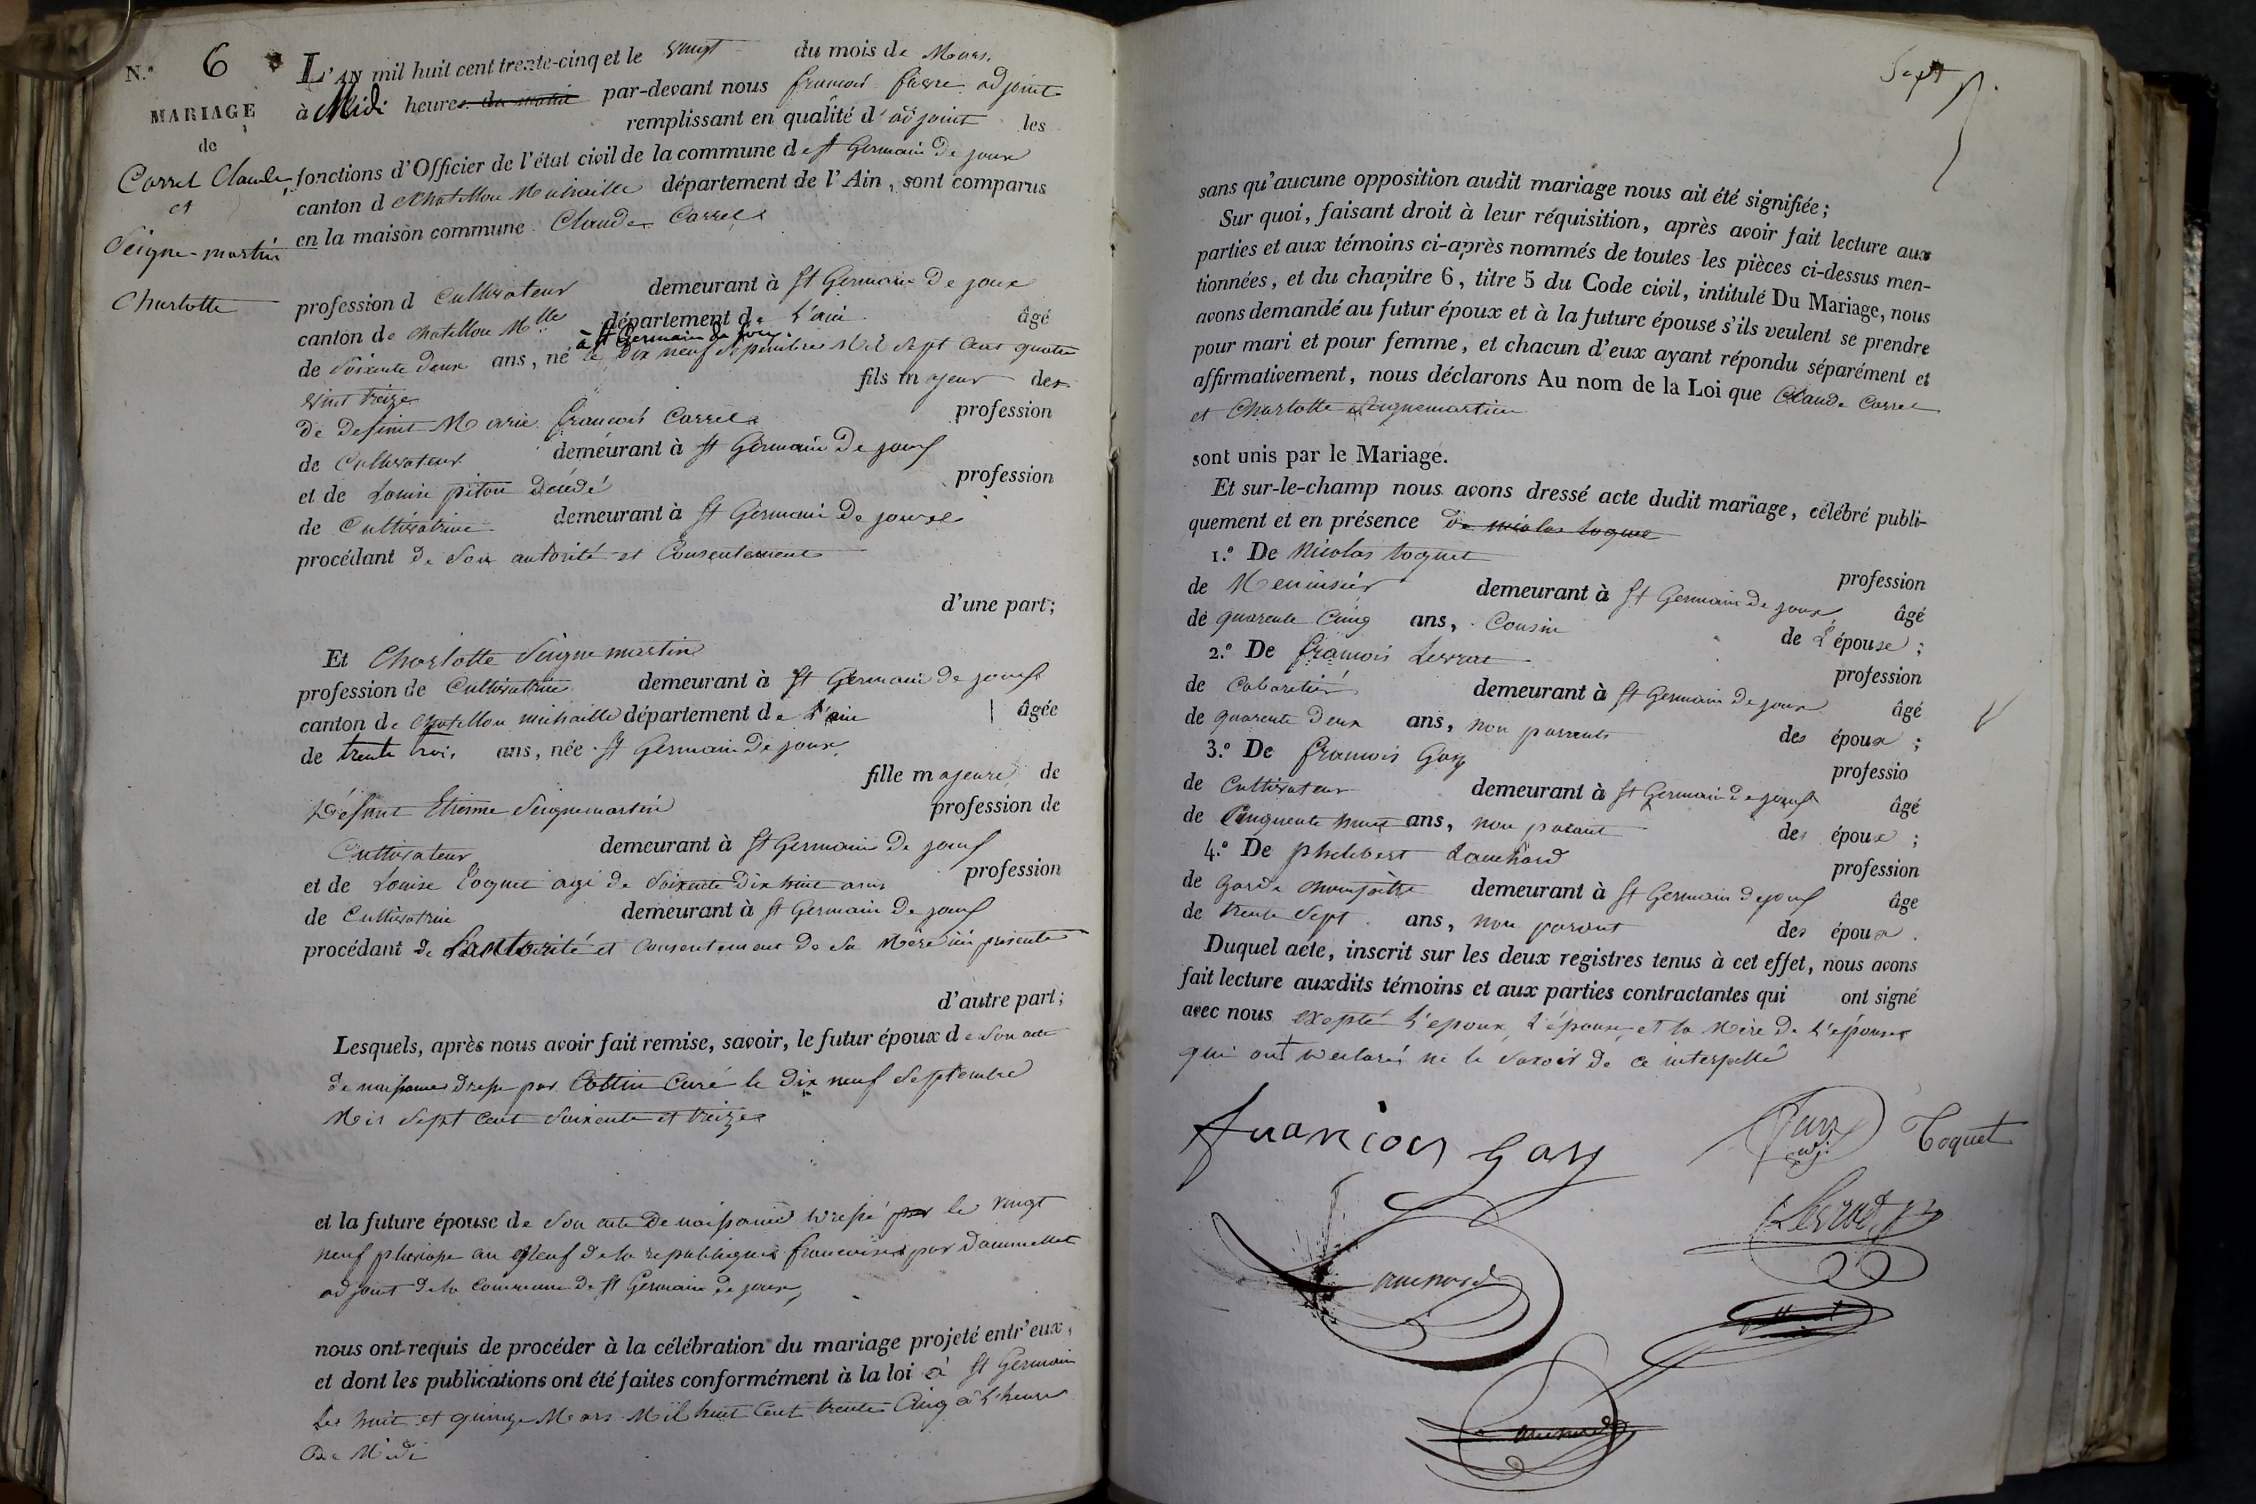 N.° 6
MARIAGE
de
Carrel Claude
et
Seigne-martin
Charlotte
L'AN mil huit cent trente-cinq et le vingt du mois de Mars,
à Midi heures du matin par-devant nous francois favre adjoint
remplissant en qualité d'adjoint les
fonctions d'Officier de l'état civil de la commune de st Germain de joux
canton d Chatillon Michaille département de l'Ain, sont comparus
en la maison commune Claude Carrel
profession d Cultivateur demeurant à st Germain de joux
canton de chatillon Mlle département de L'ain âgé
à st Germain de joux
de soixente deux ans, né le Dix neuf septembre Mil sept cent quatre
vint treize fils majeur des
de defunt Marie francois Carrel profession
de Cultivateur demeurant à st Germain de joux
et de Louise piton décédé profession
de Cultivatrice demeurant à st Germain de joux
procédant de son autorité et Consentement
d'une part;
Et Charlotte Seigne martin
profession de Cultivatrice demeurant à st Germain de joux
canton de chatillon michaille département de L'ain âgée
de trente trois ans, née st Germain de joux
fille majeure de
Défunt Etienne Seignemartin profession de
Cultivateur demeurant à st Germain de joux
et de Louise Toquet agé de soixente dix huit ans profession
de Cultivatrice demeurant à st Germain de joux
procédant de L'autorité et consentement de sa Mère ici présente
d'autre part;
Lesquels, après nous avoir fait remise, savoir, le futur époux de son acte
de naissance dressé par Cottin Curé le dix neuf septembre
Mil sept cent soixente et treize
et la future épouse de son acte de naissance dressé par le vingt
neuf pluviose an neuf de la republique francaise par
adjoint de la commune de st Germain de joux,
nous ont requis de procéder à la célébration du mariage projeté entr'eux,
et dont les publications ont été faites conformément à la loi à st Germain
les huit et quinze Mars Mil huit cent trente cinq à L'heure
de Midi
Sept 7.
sans qu'aucune opposition audit mariage nous ait été signifiée;
Sur quoi, faisant droit à leur réquisition, après avoir fait lecture aux
parties et aux témoins ci-après nommés de toutes les pièces ci-dessus men-
tionnées, et du chapitre 6, titre 5 du Code civil, intitulé Du Mariage, nous
avons demandé au futur époux et à la future épouse s'ils veulent se prendre
pour mari et pour femme, et chacun d'eux ayant répondu séparément et
affirmativement, nous déclarons Au nom de la Loi que Claude Carrel
et Charlotte Seignemartin
sont unis par le Mariage.
Et sur-le-champ nous avons dressé acte dudit mariage, célébré publi-
quement et en présence de nicolas toquet
1.° De Nicolas toquet profession
de Menuisier demeurant à st Germain de joux âgé
de quarente Cinq ans, Cousin de L'épouse;
2.° De francois Lerrat profession
de Cabaretier demeurant à st Germain de joux âgé
de quarente deux ans, non parrents des époux;
3.° De francois Gay professio
de Cultivateur demeurant à st Germain de joux âgé
de Cinquente ans, non parant des époux;
4.° De philibert profession
de Garde champêtre demeurant à st Germain de joux âge
de trente sept ans, non parant des époux.
Duquel acte, inscrit sur les deux registres tenus à cet effet, nous avons
fait lecture auxdits témoins et aux parties contractantes qui ont signé
avec nous exepté L'epoux, L'épouse et la Mère de L'épouse
qui ont declarés ne le savoir de ce interpellé
francois gay
adj.
Toquet